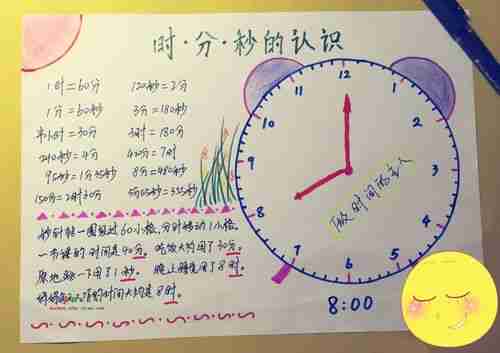 时·分·秒的认识
1时=60分 120秒=2分
1分=60秒 3分=180秒
半小时=30分 3时=180分
240秒=4分 420分=7时
95秒=1分35秒 8分=480秒
150分=2时30分 5分55秒=355秒
秒针转一圈走过60小格,分针转动1小格。
一节课的时间是40分。吃饭大约用了30分。
原地跳一下用了1秒。晚上睡觉用了8时。
的时间大约是8时。
12
1
2
3
4
5
6
7
8
9
10
11
做时间的主人
8:00